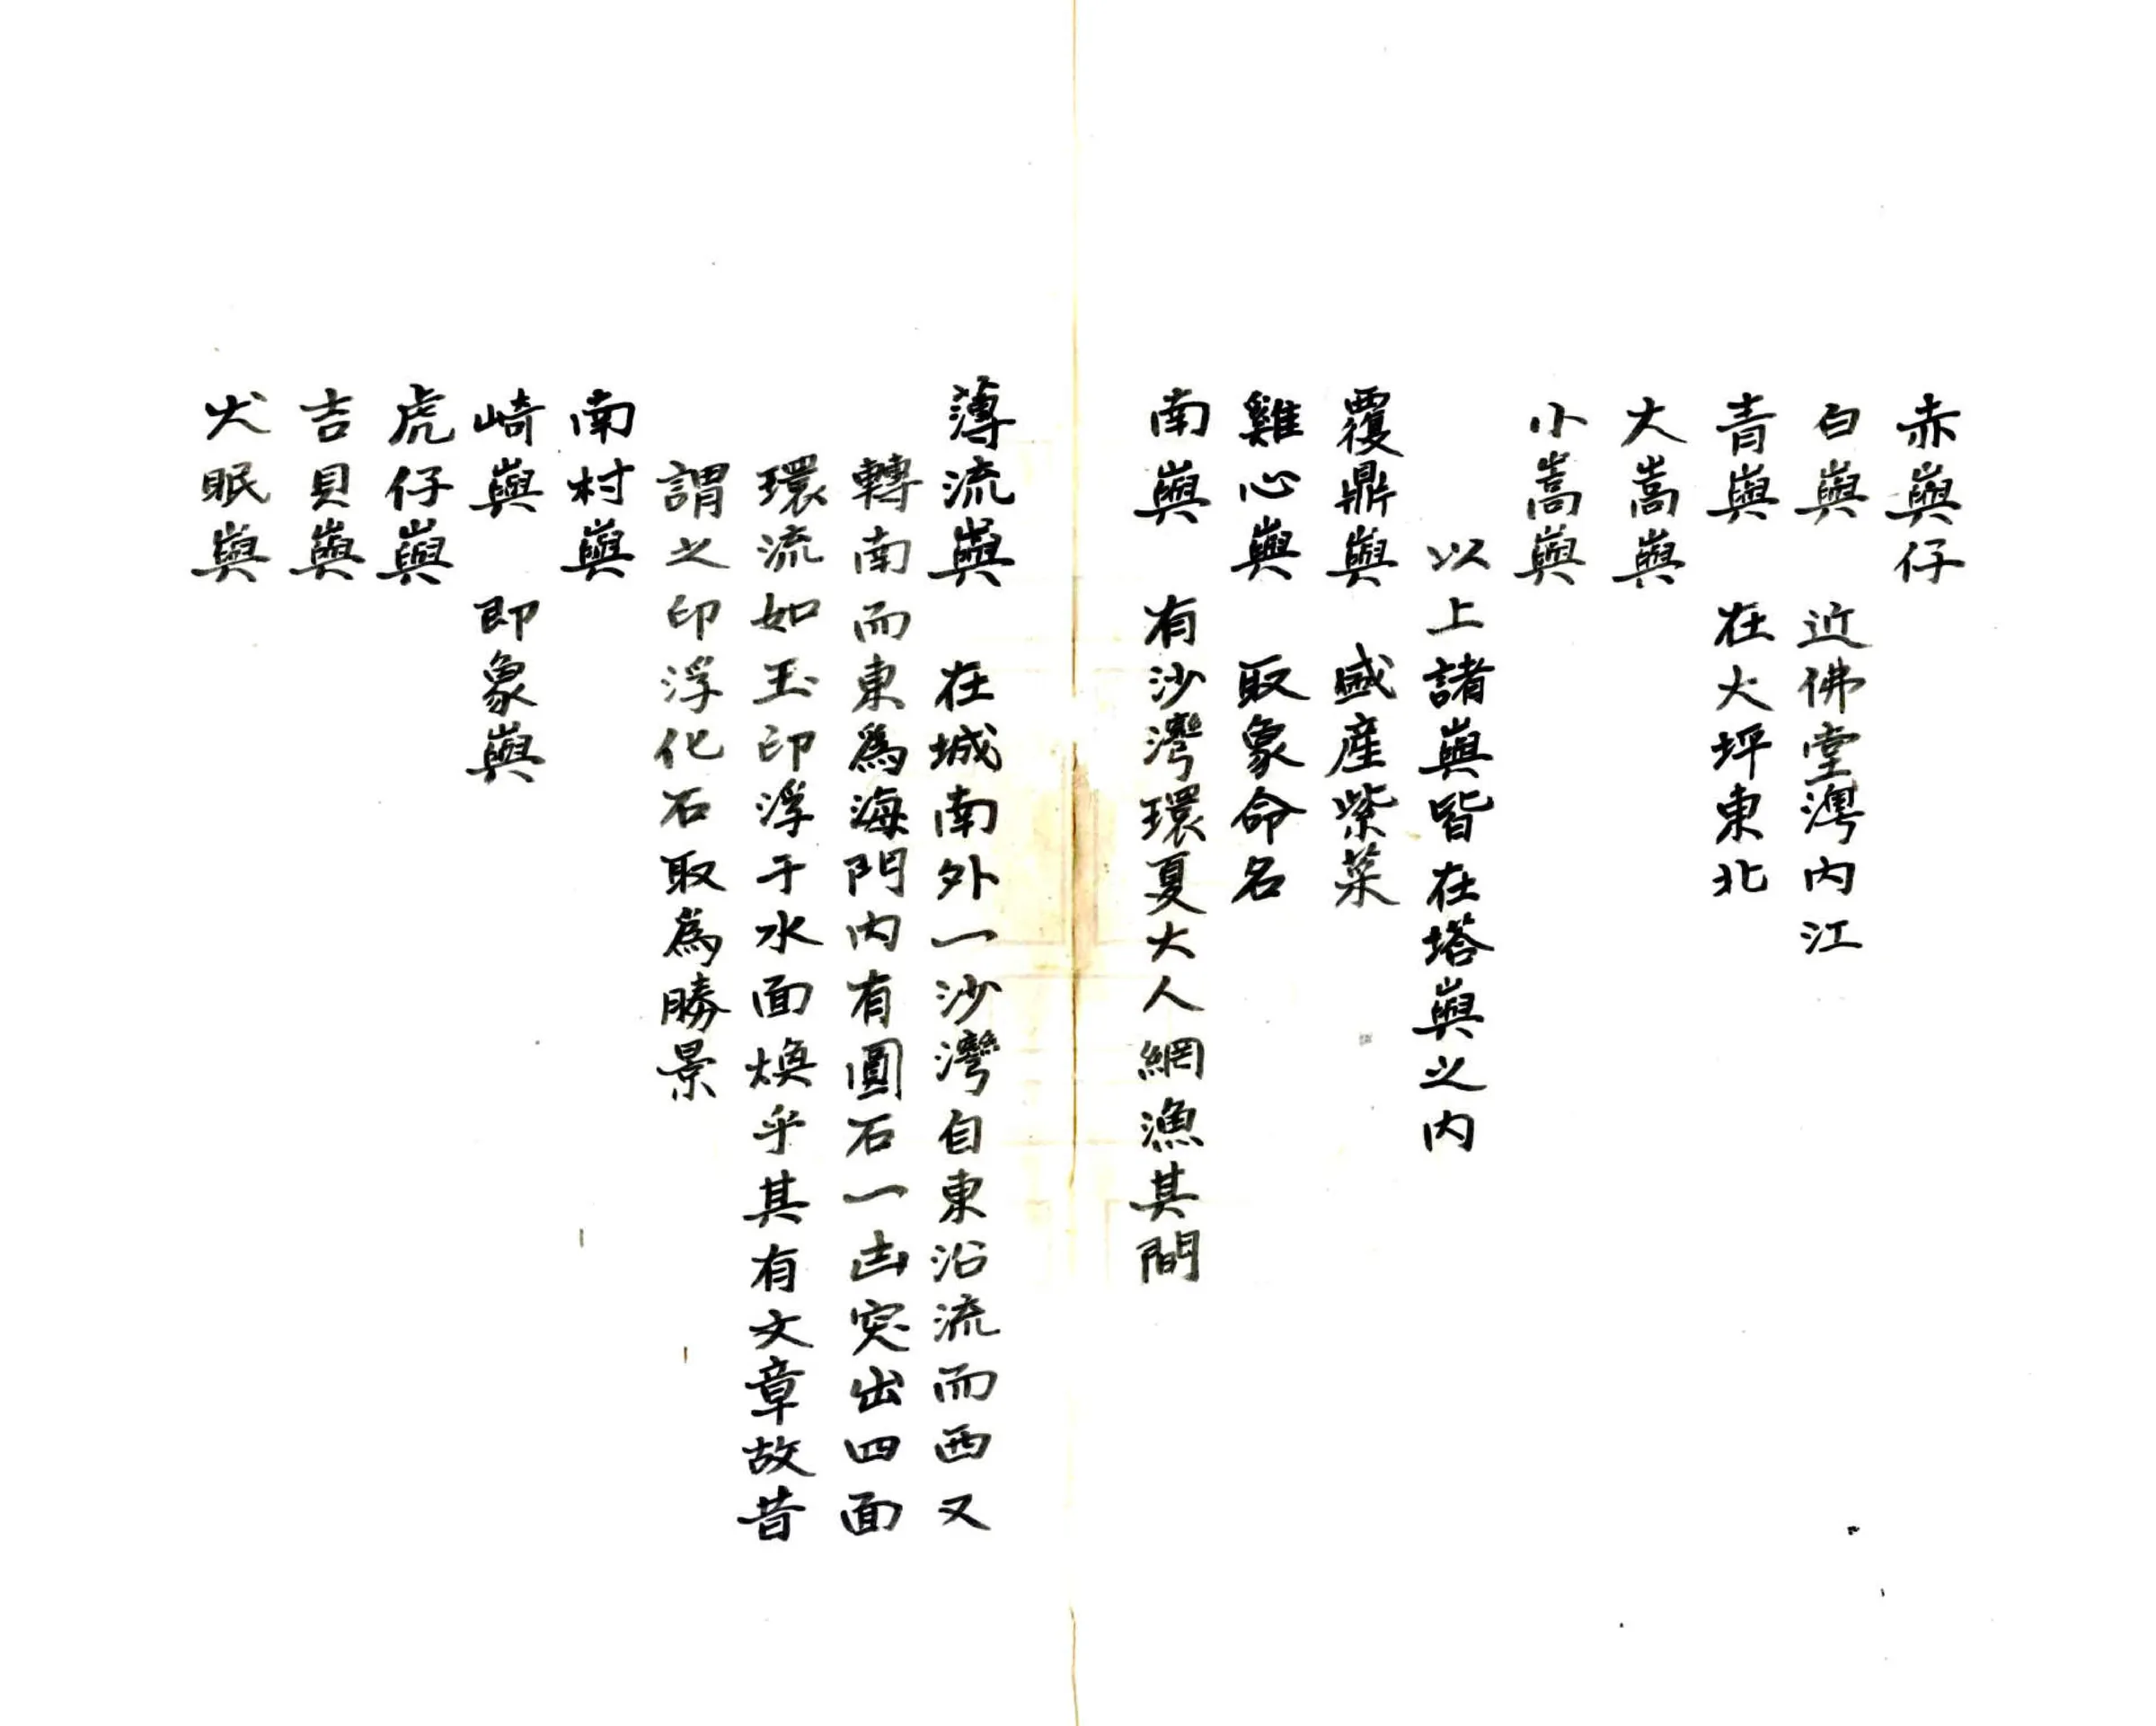 赤嶼仔
白嶼 近佛堂澳内江
青嶼 在大坪東北
大嵩嶼
小嵩嶼
以上諸嶼皆在塔嶼之内
覆鼎嶼 盛産紫菜
雞心嶼 取象命名
南嶼 有沙灣環夏大人網漁其間
薄流嶼 在城南外一沙灣自東沿流而西又
轉南而東為海門内有圓石一凸突出四面
環流如玉印浮于水面煥乎其有文章故昔
謂之印浮化石取為勝景
南村嶼
崎嶼 即象嶼
虎仔嶼
吉貝嶼
犬眠嶼